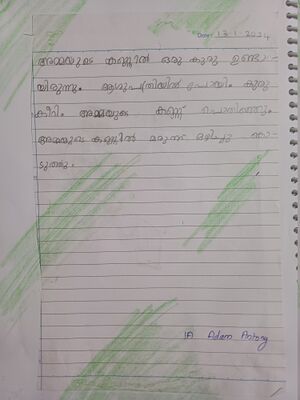 Date: 13-1-2024
അമ്മയുടെ കണ്ണിൽ ഒരു കുരു ഉണ്ടാ-
യിരുന്നു. ആശുപത്രിയിൽ പോയി. കുരു
കീറി. അമ്മയുടെ കണ്ണ് പൊതിഞ്ഞു.
അമ്മയുടെ കണ്ണിൽ മരുന്ന് ഒഴിച്ചു കൊ-
ടുത്തു.
1A Adam Antony